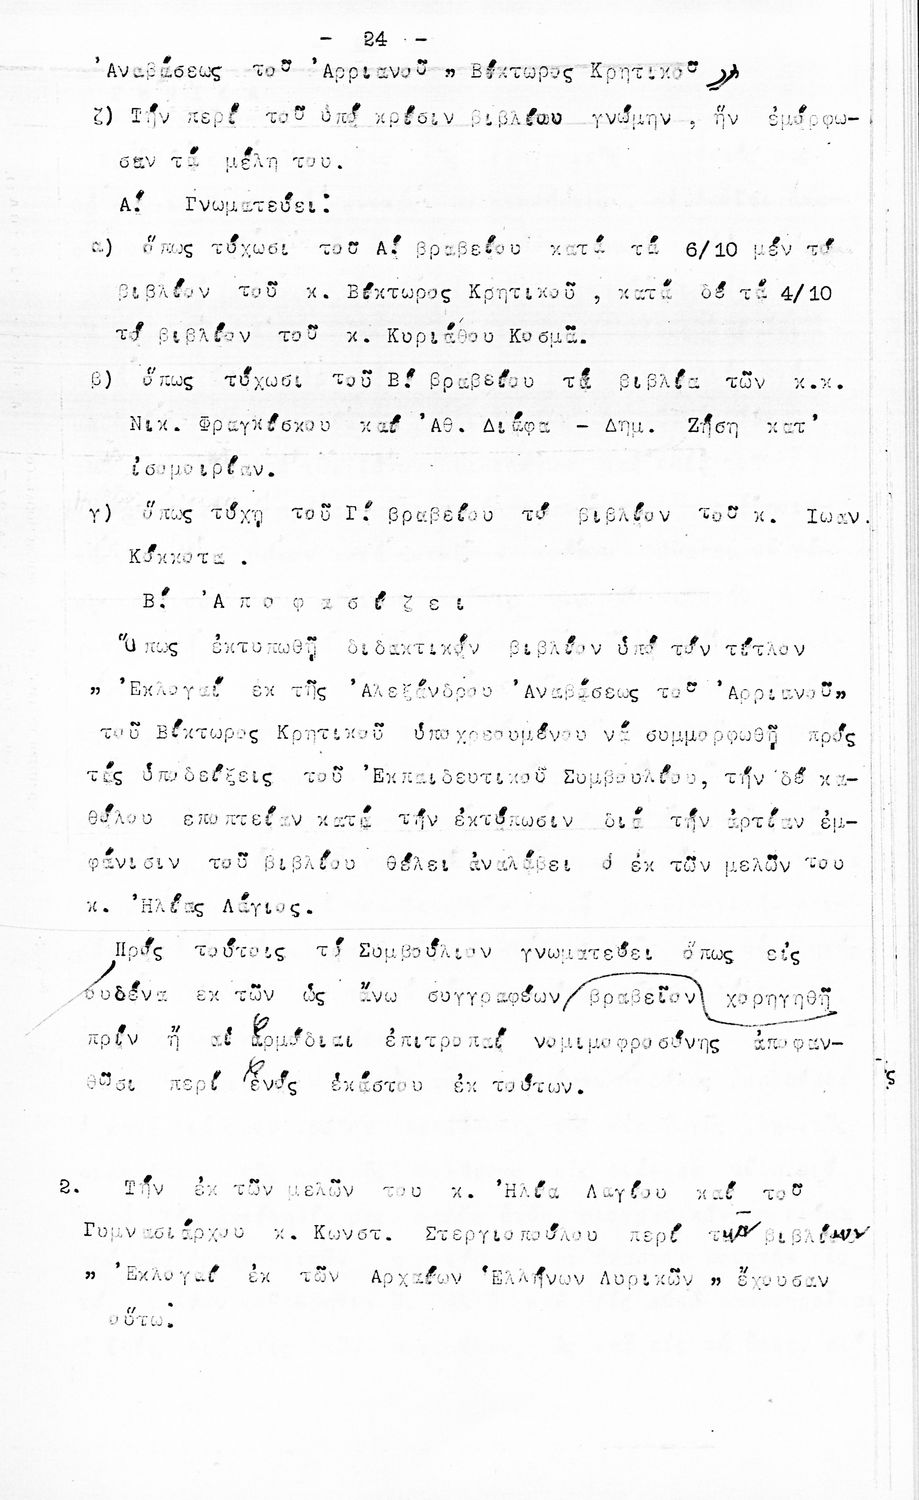 - 24 -
Ἀναβάσεως τοῦ Ἀρριανοῦ „ Βίκτωρος Κρητικοῦ
ζ) Τήν περί τοῦ ὑπό κρίσιν βιβλίου γνώμην , ἥν ἐμόρφω-
σαν τά μέλη του.
Α! Γνωματεύει:
α) ὅπως τύχωσι τοῦ Α! βραβείου κατά τά 6/10 μέν τό
βιβλίον τοῦ κ. Βίκτωρος Κρητικοῦ , κατά δέ τά 4/10
τό βιβλίον τοῦ κ. Κυριάθου Κοσμᾶ.
β) ὅπως τύχωσι τοῦ Β! βραβείου τά βιβλία τῶν κ.κ.
Νικ. Φραγκίσκου καί Ἀθ. Διάφα - Δημ. Ζήση κατ'
ἰσομοιρίαν.
γ) ὅπως τύχῃ τοῦ Γ! βραβείου τό βιβλίον τοῦ κ. Ιωαν.
Κόκκοτα .
Β! Ἀ π ο φ α σ ί ζ ε ι
Ὅπως ἐκτυπωθῇ διδακτικόν βιβλίον ὑπό τόν τίτλον
„ Ἐκλογαί ἐκ τῆς Ἀλεξάνδρου Ἀναβάσεως τοῦ Ἀρριανοῦ„
τοῦ Βίκτωρος Κρητικοῦ ὑποχρεουμένου νά συμμορφωθῇ πρός
τάς ὑποδείξεις τοῦ Ἐκπαιδευτικοῦ Συμβουλίου, τήν δέ κα-
θόλου εποπτείαν κατά τήν ἐκτύπωσιν διά τήν ἀρτίαν ἐμ-
φάνισιν τοῦ βιβλίου θέλει ἀναλάβει ὁ ἐκ τῶν μελῶν του
κ. Ἠλίας Λάγιος.
Πρός τούτοις τό Συμβούλιον γνωματεύει ὅπως εἰς
ουδένα εκ τῶν ὡς ἄνω συγγραφέων βραβεῖον χορηγηθῇ
πρίν ἤ αἱ ἁρμόδιαι ἐπιτροπαί νομιμοφροσύνης ἀποφαν-
θῶσι περί ἑνός ἑκάστου ἐκ τούτων.
2. Τήν ἐκ τῶν μελῶν του κ. Ἠλία Λαγίου καί τοῦ
Γυμνασιάρχου κ. Κωνστ. Στεργιοπούλου περί τῶν βιβλίων
„ Ἐκλογαί ἐκ τῶν Αρχαίων Ἑλλήνων Λυρικῶν „ ἔχουσαν
οὕτω: